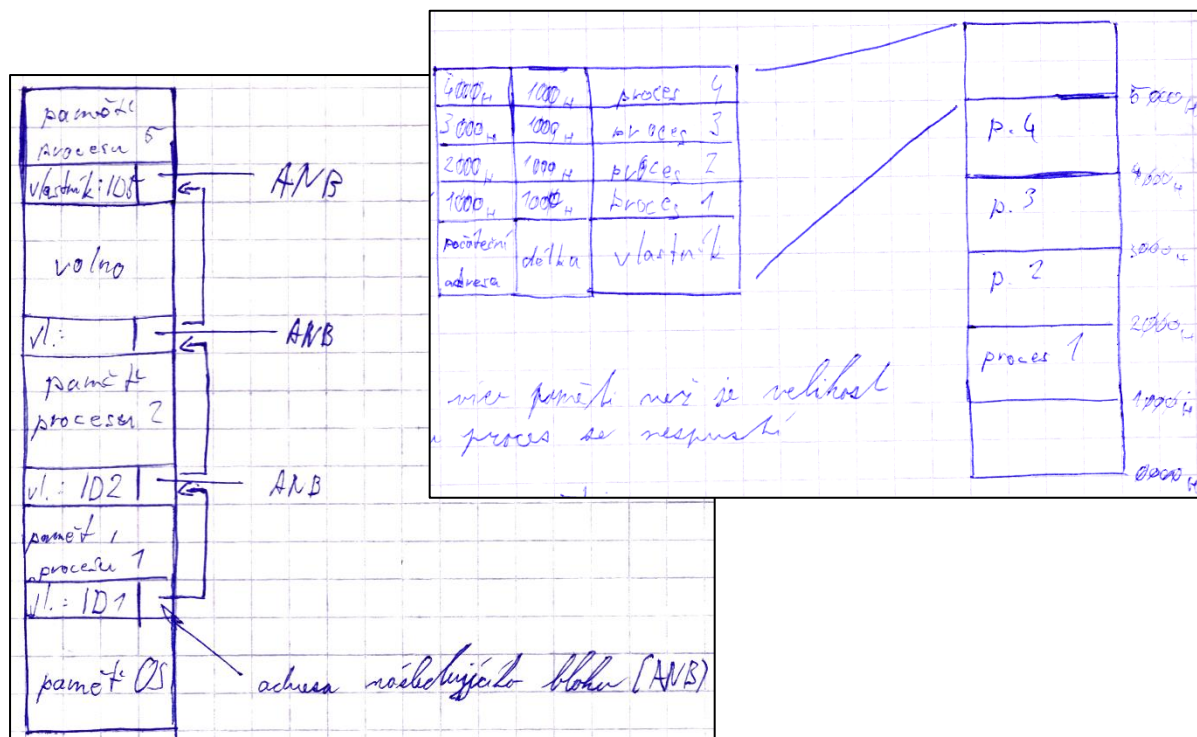 paměť
procesu 5
vlastník: ID5
ANB
volno
vl.:
ANB
paměť
procesu 2
vl.: ID2
ANB
paměť
procesu 1
vl.: ID1
paměť OS
adresa následujícího bloku (ANB)
4000H 1000H proces 4
3000H 1000H proces 3
2000H 1000H proces 2
1000H 1000H proces 1
počáteční
adresa
délka
vlastník
více paměti než je velikost
proces se nespustí
5000H
p. 4
4000H
p. 3
3000H
p. 2
2000H
proces 1
1000H
0000H